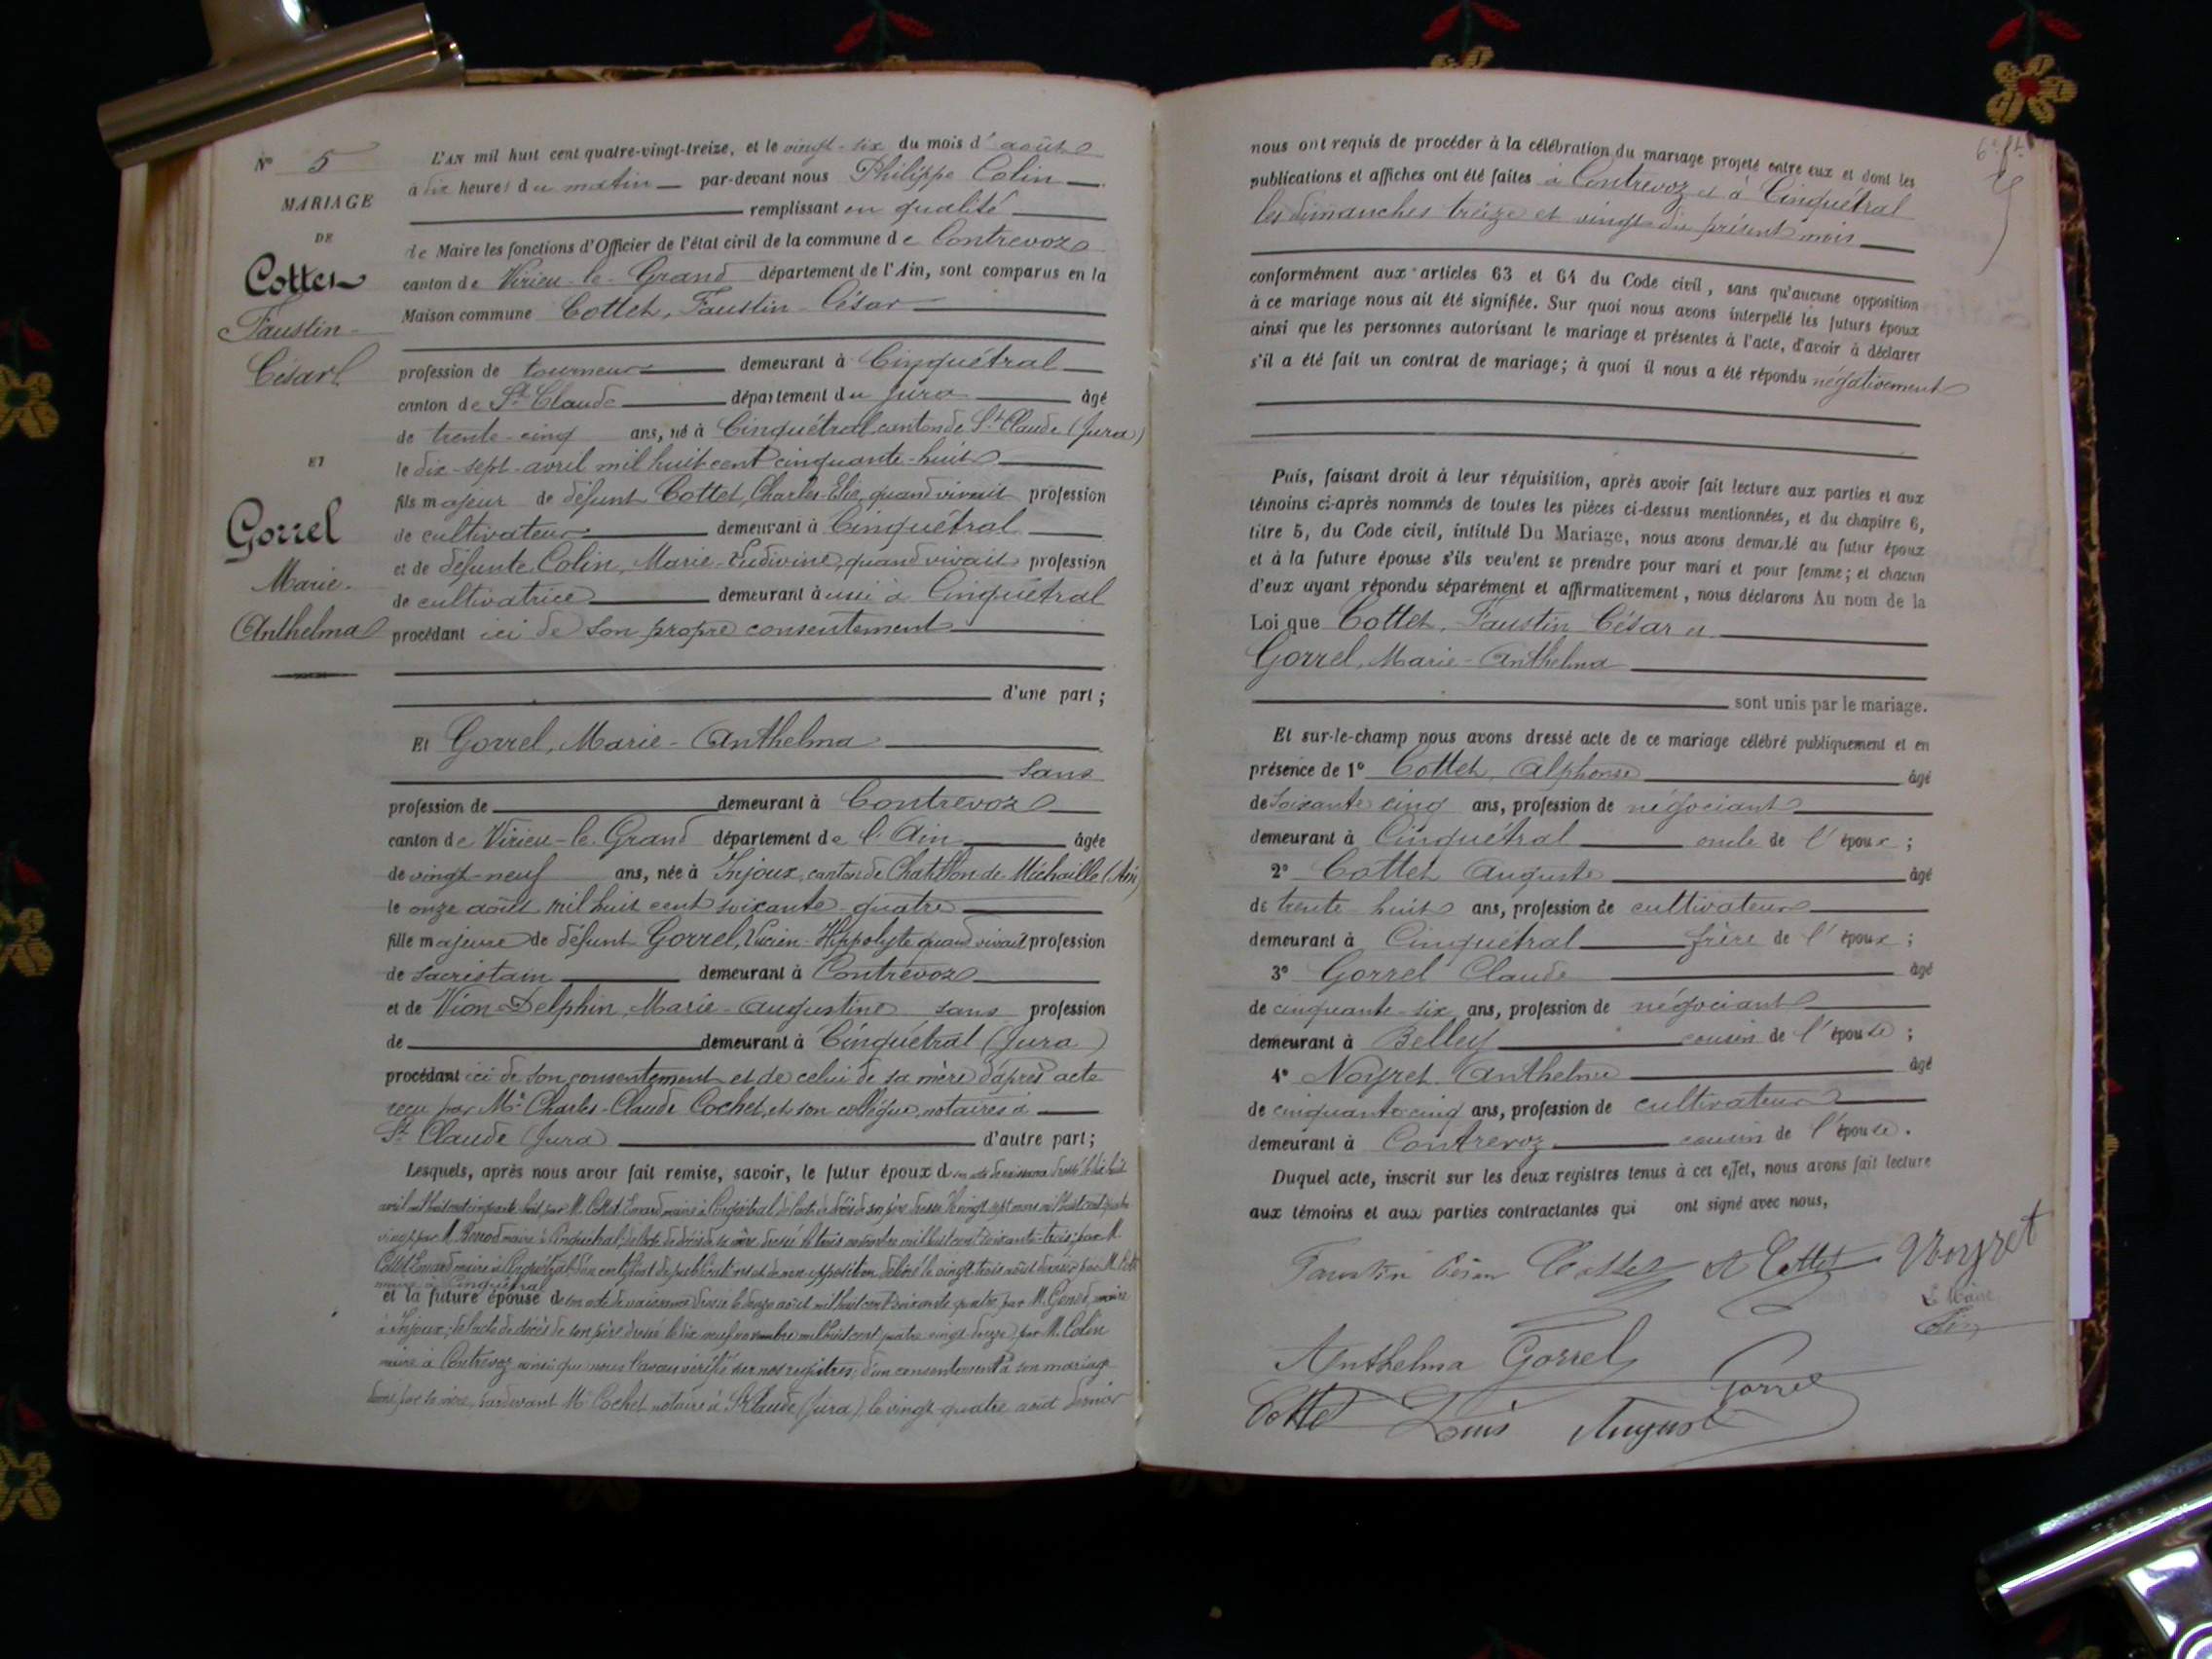 N° 5
MARIAGE
DE
Cottet
Faustin-
César
ET
Gorrel
Marie-
Anthelma
L'AN mil huit cent quatre-vingt-treize, et le vingt-six du mois d'août
à dix heures du matin par-devant nous Philippe Colin
remplissant en qualité
de Maire les fonctions d'Officier de l'état civil de la commune de Contrevoz
canton de Virieu-le-Grand département de l'Ain, sont comparus en la
Maison commune Cottet, Faustin-César
profession de tourneur demeurant à Cinquétral
canton de St Claude département du Jura âgé
de trente-cinq ans, né à Cinquétral canton de St Claude (Jura)
le dix-sept avril mil huit cent cinquante-huit
fils majeur de défunt Cottet, Charles-Elie, quand vivait profession
de cultivateur demeurant à Cinquétral
et de défunte Colin, Marie-Ludivine, quand vivait profession
de cultivatrice demeurant aussi à Cinquétral
procédant ici de son propre consentement
d'une part ;
Et Gorrel, Marie-Anthelma
sans
profession de demeurant à Contrevoz
canton de Virieu-le-Grand département de l'Ain âgée
de vingt-neuf ans, née à Injoux, canton de Chatillon de Michaille (Ain)
le onze août mil huit cent soixante-quatre
fille majeure de défunt Gorrel, Hippolyte quand vivait profession
de sacristain demeurant à Contrevoz
et de Vion-Delphin, Marie-Augustine sans profession
de demeurant à Cinquétral (Jura)
procédant ici de son consentement et de celui de sa mère d'après acte
reçu par Me Charles-Claude Cochet, et son collègue, notaires à
St Claude (Jura) d'autre part ;
Lesquels, après nous avoir fait remise, savoir, le futur époux de son acte de naissance dressé le dix-huit
avril mil huit cent cinquante huit par M. Cottet maire à Cinquétral, de l'acte de décès de son père dressé le vingt sept mil huit cent quatre
vingt par M. maire à Cinquétral, de l'acte de décès de sa mère dressé le trois mil huit cent soixante-trois par M.
Cottet maire à Cinquétral, d'un certificat de publications et de non opposition délivré le vingt-trois août dernier par M.
maire à Cinquétral
et la future épouse de son acte de naissance dressé le douze août mil huit cent soixante quatre par M. maire
à Injoux ; de l'acte de décès de son père dressé le dix neuf novembre mil huit cent quatre vingt douze par M. Colin
maire à Contrevoz ainsi que nous l'avons vérifié sur nos registres ; d'un consentement à son mariage
donné par sa mère, par devant Me Cochet notaire à St Claude (Jura) le vingt-quatre août dernier
nous ont requis de procéder à la célébration du mariage projeté entre eux et dont les
publications et affiches ont été faites à Contrevoz et à Cinquétral
les dimanches treize et vingt du présent mois
conformément aux articles 63 et 64 du Code civil, sans qu'aucune opposition
à ce mariage nous ait été signifiée. Sur quoi nous avons interpellé les futurs époux
ainsi que les personnes autorisant le mariage et présentes à l'acte, d'avoir à déclarer
s'il a été fait un contrat de mariage ; à quoi il nous a été répondu négativement
Puis, faisant droit à leur réquisition, après avoir fait lecture aux parties et aux
témoins ci-après nommés de toutes les pièces ci-dessus mentionnées, et du chapitre 6,
titre 5, du Code civil, intitulé Du Mariage, nous avons demandé au futur époux
et à la future épouse s'ils veulent se prendre pour mari et pour femme ; et chacun
d'eux ayant répondu séparément et affirmativement, nous déclarons Au nom de la
Loi que Cottet, Faustin César et
Gorrel, Marie-Anthelma
sont unis par le mariage.
Et sur-le-champ nous avons dressé acte de ce mariage célébré publiquement et en
présence de 1° Cottet, Alphonse âgé
de soixante cinq ans, profession de négociant
demeurant à Cinquétral oncle de l'époux ;
2° Cottet Auguste âgé
de trente-huit ans, profession de cultivateur
demeurant à Cinquétral frère de l'époux ;
3° Gorrel Claude âgé
de cinquante-six ans, profession de négociant
demeurant à Belley cousin de l'épouse ;
4° Noyret Anthelme âgé
de cinquante-cinq ans, profession de cultivateur
demeurant à Contrevoz cousin de l'épouse.
Duquel acte, inscrit sur les deux registres tenus à cet effet, nous avons fait lecture
aux témoins et aux parties contractantes qui ont signé avec nous,
Faustin César Cottet A Cottet Noyret
Le Maire
Colin
Anthelma Gorrel
Gorrel
Cottet Louis August